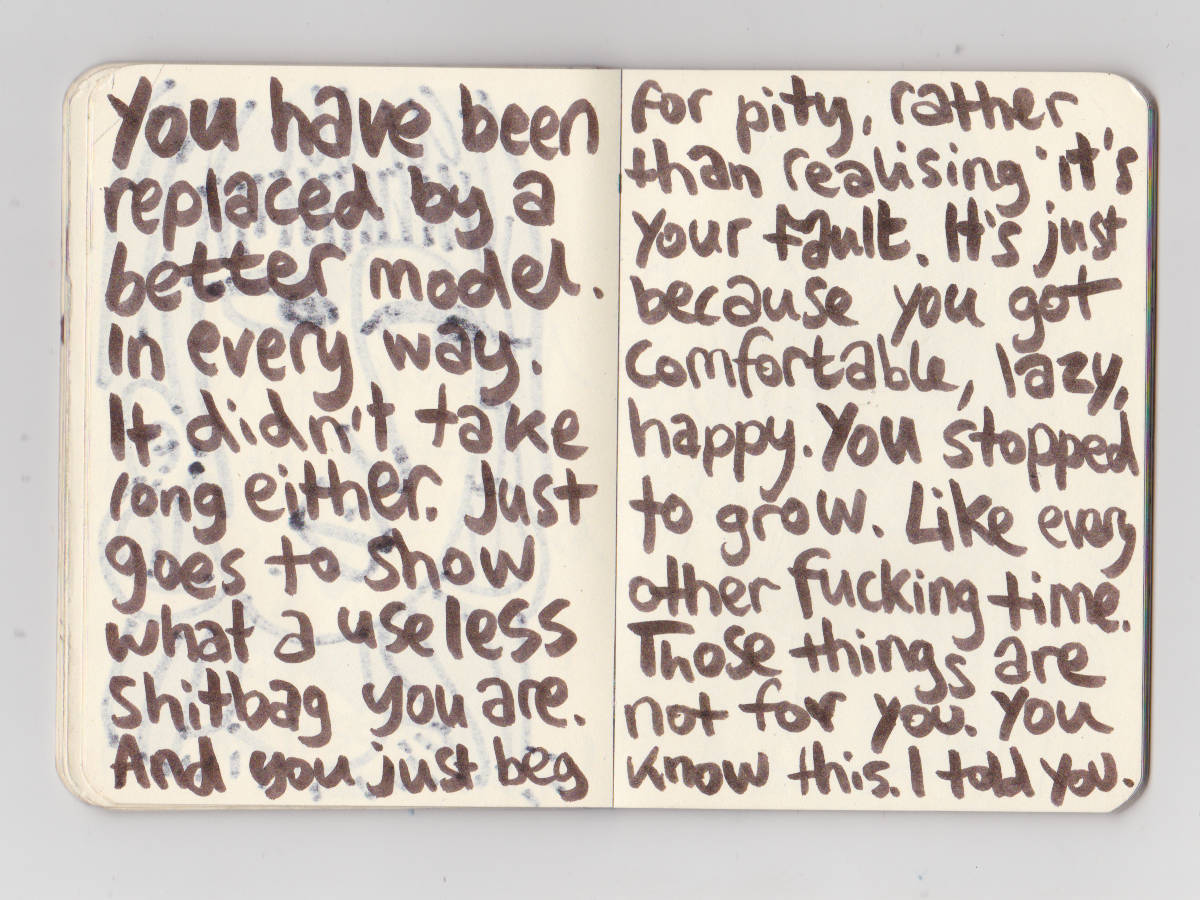 You have been
replaced by a
better model.
In every way.
It didn't take
long either. Just
goes to show
what a useless
shitbag you are.
And you just beg
for pity, rather
than realising it's
your fault. It's just
because you got
comfortable, lazy,
happy. You stopped
to grow. Like every
other fucking time.
Those things are
not for you. You
know this. I told you.